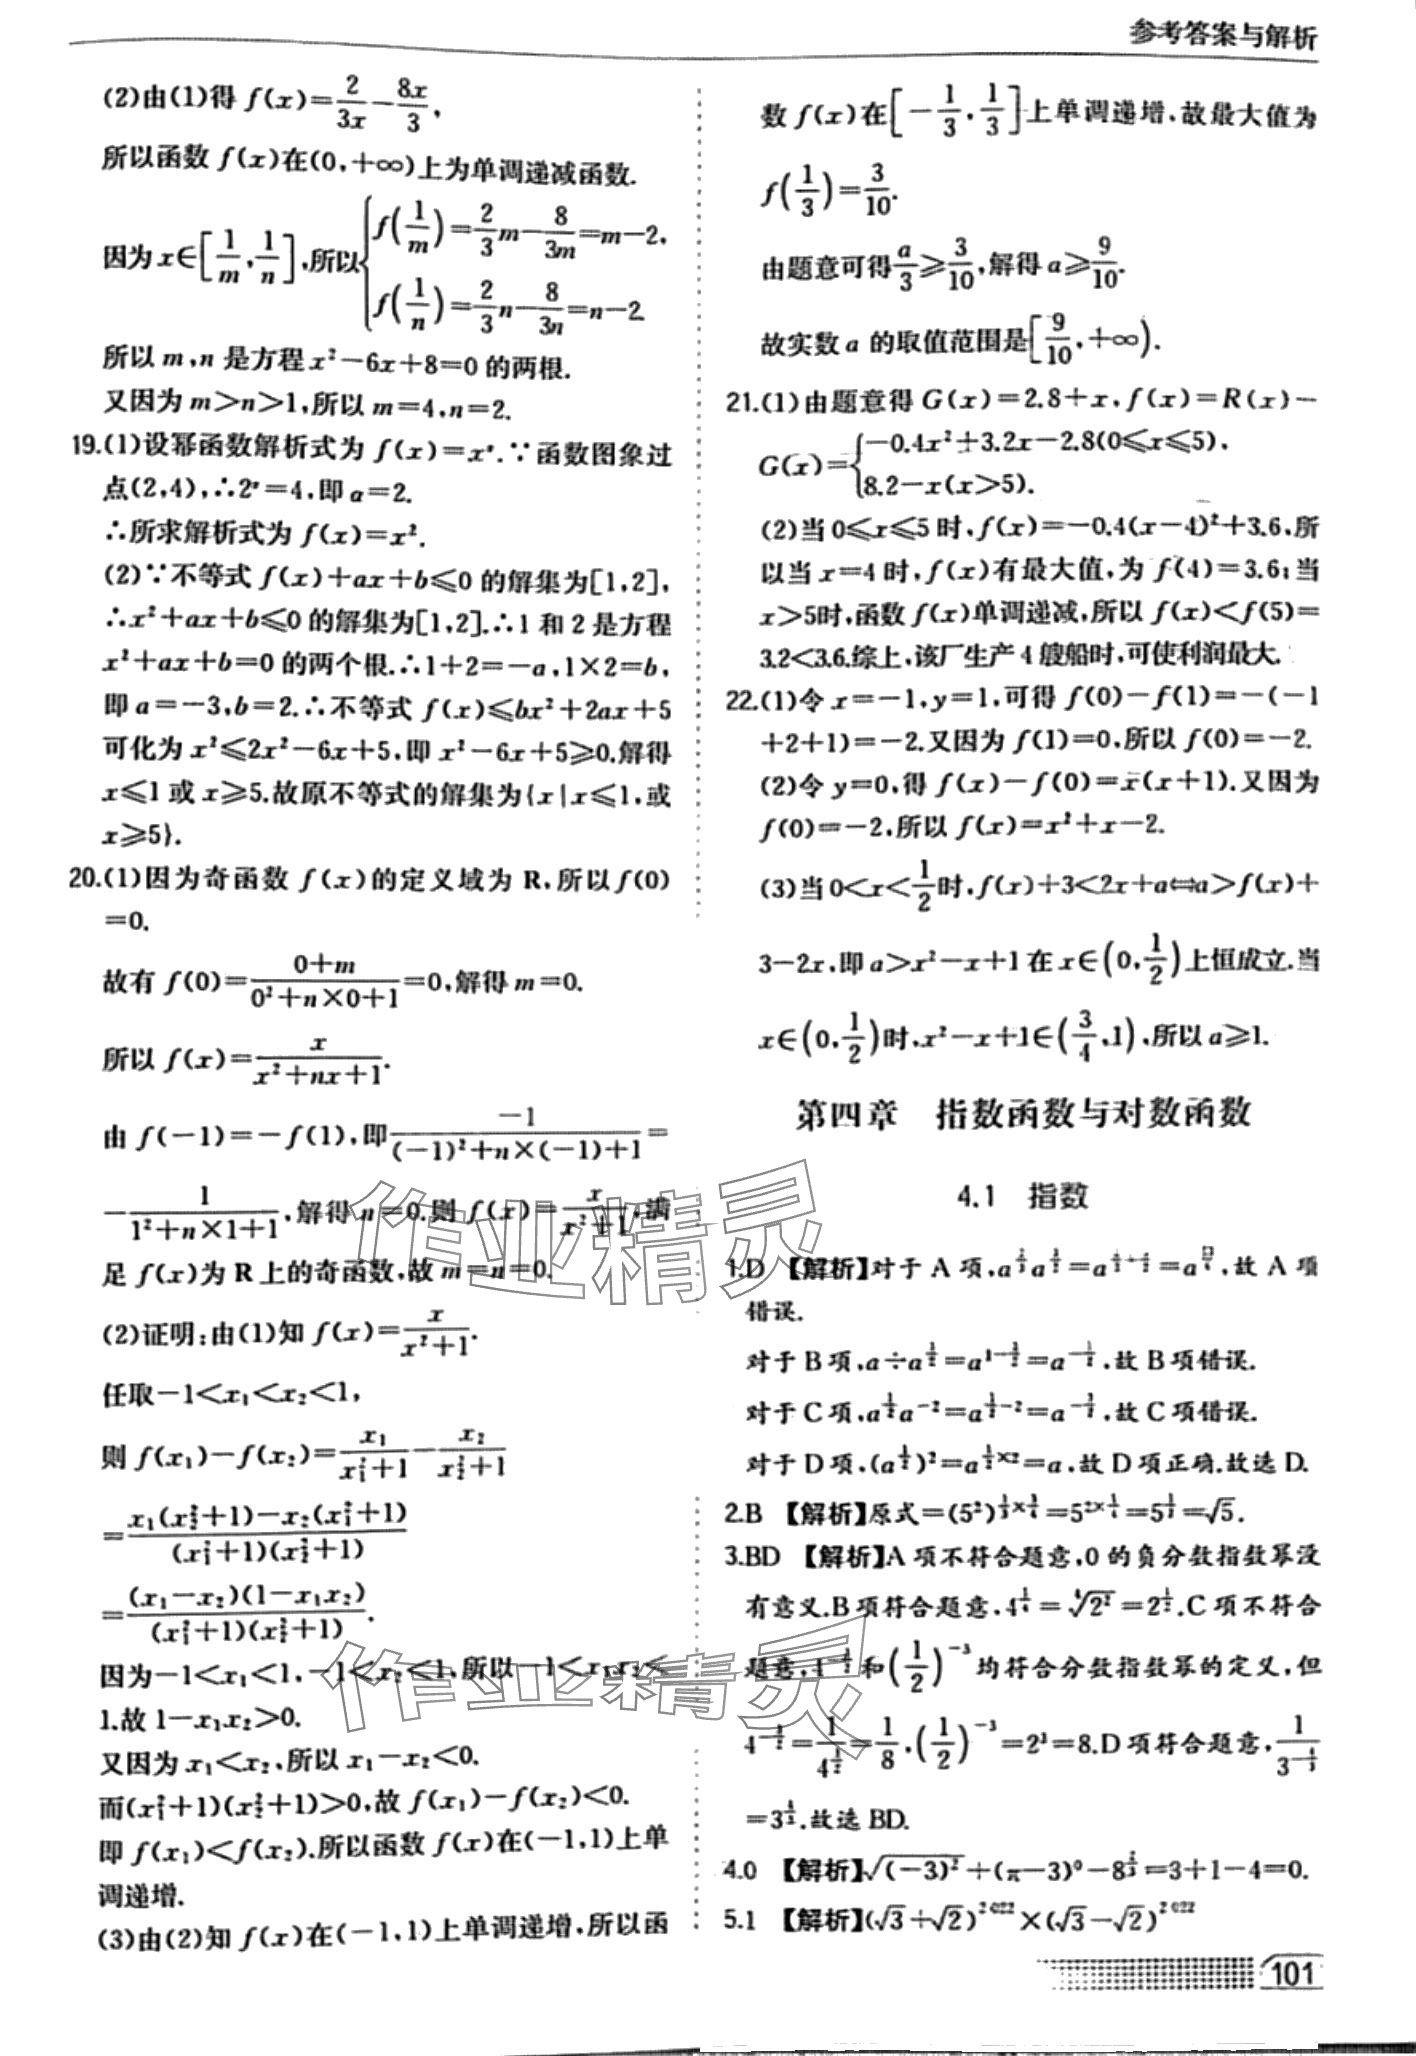 参考答案与解析
(2)由(1)得 f(x)=2/(3x)−8x/3,
所以函数 f(x)在(0,+∞)上为单调递减函数.
因为x∈[1/m,1/n],所以{f(1/m)=2/3m−8/(3m)=m−2,
f(1/n)=2/3n−8/(3n)=n−2.
所以 m,n 是方程 x²−6x+8=0 的两根.
又因为 m>n>1,所以 m=4,n=2.
19.(1)设幂函数解析式为 f(x)=xᵃ.∵函数图象过
点(2,4),∴2ᵃ=4,即 a=2.
∴所求解析式为 f(x)=x².
(2)∵不等式 f(x)+ax+b⩽0 的解集为[1,2],
∴x²+ax+b⩽0 的解集为[1,2].∴1 和 2 是方程
x²+ax+b=0 的两个根.∴1+2=−a,1×2=b,
即 a=−3,b=2.∴不等式 f(x)⩽bx²+2ax+5
可化为 x²⩽2x²−6x+5,即 x²−6x+5⩾0.解得
x⩽1 或 x⩾5.故原不等式的解集为{x|x⩽1,或
x⩾5}.
20.(1)因为奇函数 f(x)的定义域为 R,所以f(0)
=0.
故有 f(0)=(0+m)/(0²+n×0+1)=0,解得 m=0.
所以 f(x)=x/(x²+nx+1).
由 f(−1)=−f(1),即−1/((−1)²+n×(−1)+1)=
−1/(1²+n×1+1),解得 n=0.则 f(x)=x/(x²+1),满
足 f(x)为 R 上的奇函数,故 m=n=0.
(2)证明:由(1)知 f(x)=x/(x²+1).
任取−1<x₁<x₂<1,
则 f(x₁)−f(x₂)=x₁/(x₁²+1)−x₂/(x₂²+1)
=(x₁(x₂²+1)−x₂(x₁²+1))/((x₁²+1)(x₂²+1))
=((x₁−x₂)(1−x₁x₂))/((x₁²+1)(x₂²+1)).
因为−1<x₁<1,−1<x₂<1,所以−1<x₁x₂<
1.故 1−x₁x₂>0.
又因为 x₁<x₂,所以 x₁−x₂<0.
而(x₁²+1)(x₂²+1)>0,故 f(x₁)−f(x₂)<0.
即 f(x₁)<f(x₂).所以函数 f(x)在(−1,1)上单
调递增.
(3)由(2)知 f(x)在(−1,1)上单调递增,所以函
数 f(x)在[−1/3,1/3]上单调递增,故最大值为
f(1/3)=3/10.
由题意可得a/3⩾3/10,解得 a⩾9/10.
故实数 a 的取值范围是[9/10,+∞).
21.(1)由题意得 G(x)=2.8+x,f(x)=R(x)−
G(x)={−0.4x²+3.2x−2.8(0⩽x⩽5),
8.2−x(x>5).
(2)当 0⩽x⩽5 时,f(x)=−0.4(x−4)²+3.6,所
以当 x=4 时,f(x)有最大值,为 f(4)=3.6;当
x>5时,函数 f(x)单调递减,所以 f(x)<f(5)=
3.2<3.6.综上,该厂生产 4 艘船时,可使利润最大.
22.(1)令 x=−1,y=1,可得 f(0)−f(1)=−(−1
+2+1)=−2.又因为 f(1)=0,所以 f(0)=−2.
(2)令 y=0,得 f(x)−f(0)=x(x+1).又因为
f(0)=−2,所以 f(x)=x²+x−2.
(3)当 0<x<1/2时,f(x)+3<2x+a⇔a>f(x)+
3−2x,即 a>x²−x+1 在 x∈(0,1/2)上恒成立.当
x∈(0,1/2)时,x²−x+1∈(3/4,1),所以 a⩾1.
第四章 指数函数与对数函数
4.1 指数
1.D 【解析】对于 A 项,,故 A 项
错误.
对于 B 项,a÷a^(1/2)=a^(1−1/2)=a^(−1/2),故 B 项错误.
对于 C 项,a^(1/2)a^(−2)=a^(1/2−2)=a^(−3/2),故 C 项错误.
对于 D 项,(a^(1/2))²=a^(1/2×2)=a,故 D 项正确.故选 D.
2.B 【解析】原式==5^(1/2)=√5.
3.BD 【解析】A 项不符合题意,0 的负分数指数幂没
有意义.B 项符合题意,4^(1/4)=⁴√2²=2^(1/2).C 项不符合
题意,4^(−3/2)和(1/2)^(−3)均符合分数指数幂的定义,但
4^(−3/2)=1/4^(3/2)=1/8,(1/2)^(−3)=2³=8.D 项符合题意,1/3^(−1/3)
=3^(1/3).故选 BD.
4.0 【解析】√(−3)²+(π−3)⁰−8^(2/3)=3+1−4=0.
5.1 【解析】(√3+√2)²⁰²²×(√3−√2)²⁰²²
101
作业精灵
作业精灵